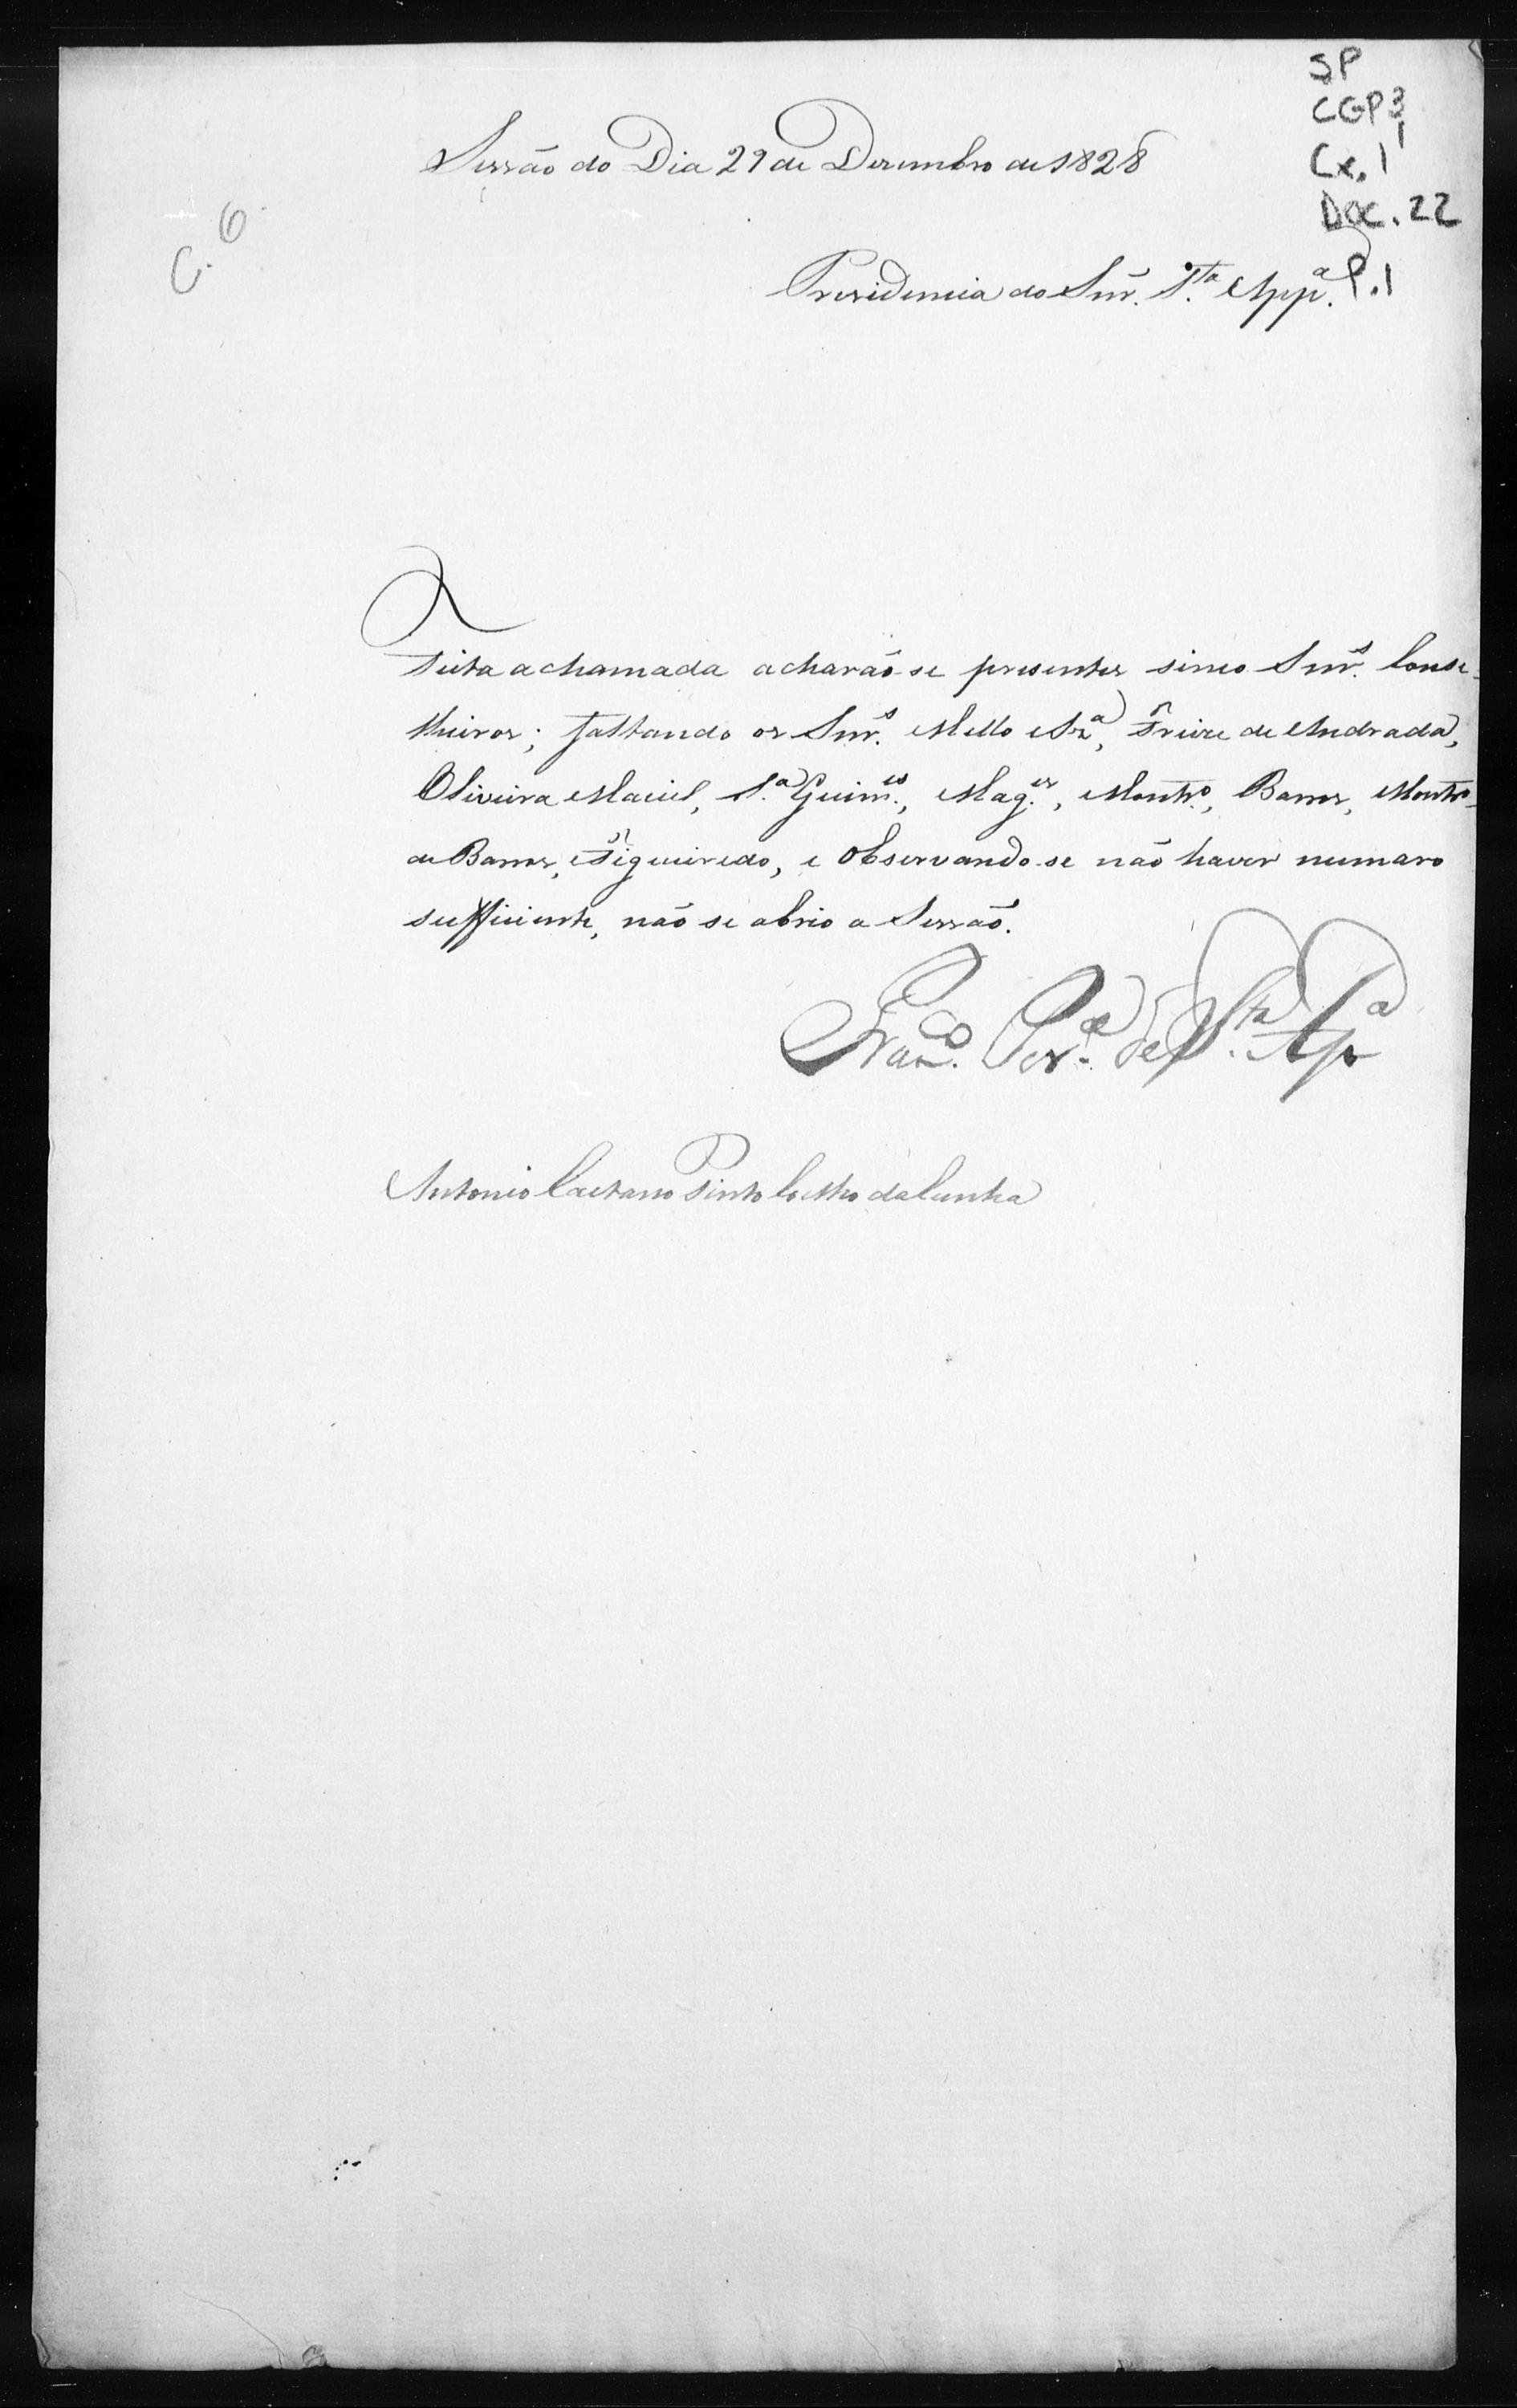 SP
CGP3
Cx. 1
Doc. 22
P. 1
C. 6
Sessão do Dia 29 de Dezembro de 1828
Prezidencia do Snr. S.ta App.a
Feita a chamada acharão-se presentes sinco Snr.s Conse-
lheiros; faltando os Snr.s Mello e Sz.a, Freire de Andrada,
Oliveira Maciel, S.a Guim.es, Mag.es, Montr.o, Barros, Montr.o
de Barros, e Figueiredo, e observando-se não haver numaro
sufficiente, não se abrio a Sessão.
Fran.co Per.a de S.ta Ap.a
Antonio Caetano Pinto Coelho da Cunha